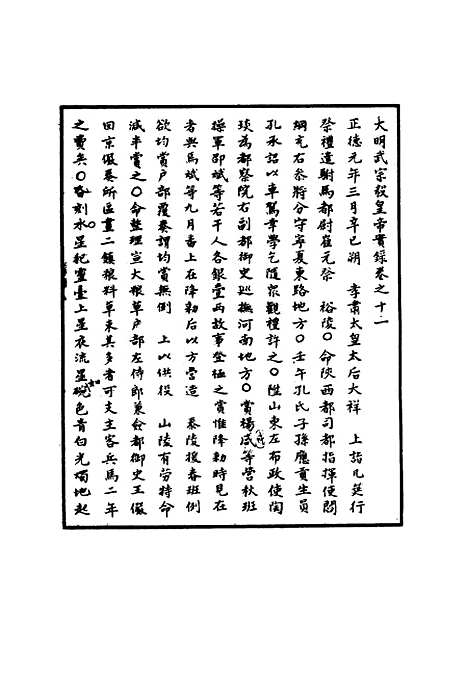 大明武宗毅皇帝實錄卷之十一
正德元年三月辛巳朔　孝肅太皇太后大祥　上詣几筵行
祭禮遣駙馬都尉崔元祭　裕陵○命陝西都司都指揮使閻
綱充右參將分守寧夏東路地方○壬午孔氏子孫應貢生員
孔承詔以車駕幸學乞隨眾觀禮許之○陞山東左布政使陶
琰為都察院右副都御史巡撫河南地方○賞楊威等營秋班
操軍邵斌等若干人各銀壹兩故事登極之賞惟降勑時見在
者與馬斌等九月番上在降勑后以方營造　泰陵援春班例
欲均賞戶部覆奏謂均賞無例　上以供役　山陵有勞特命
減半賞之○命整理宣大粮草戶部左侍郎兼僉都御史王儼
回京儼奏所區畫二鎮粮料草束其多者可支主客兵馬二年
之費矣○昏刻水星犯靈臺上星夜流星如碗色青白光燭地起